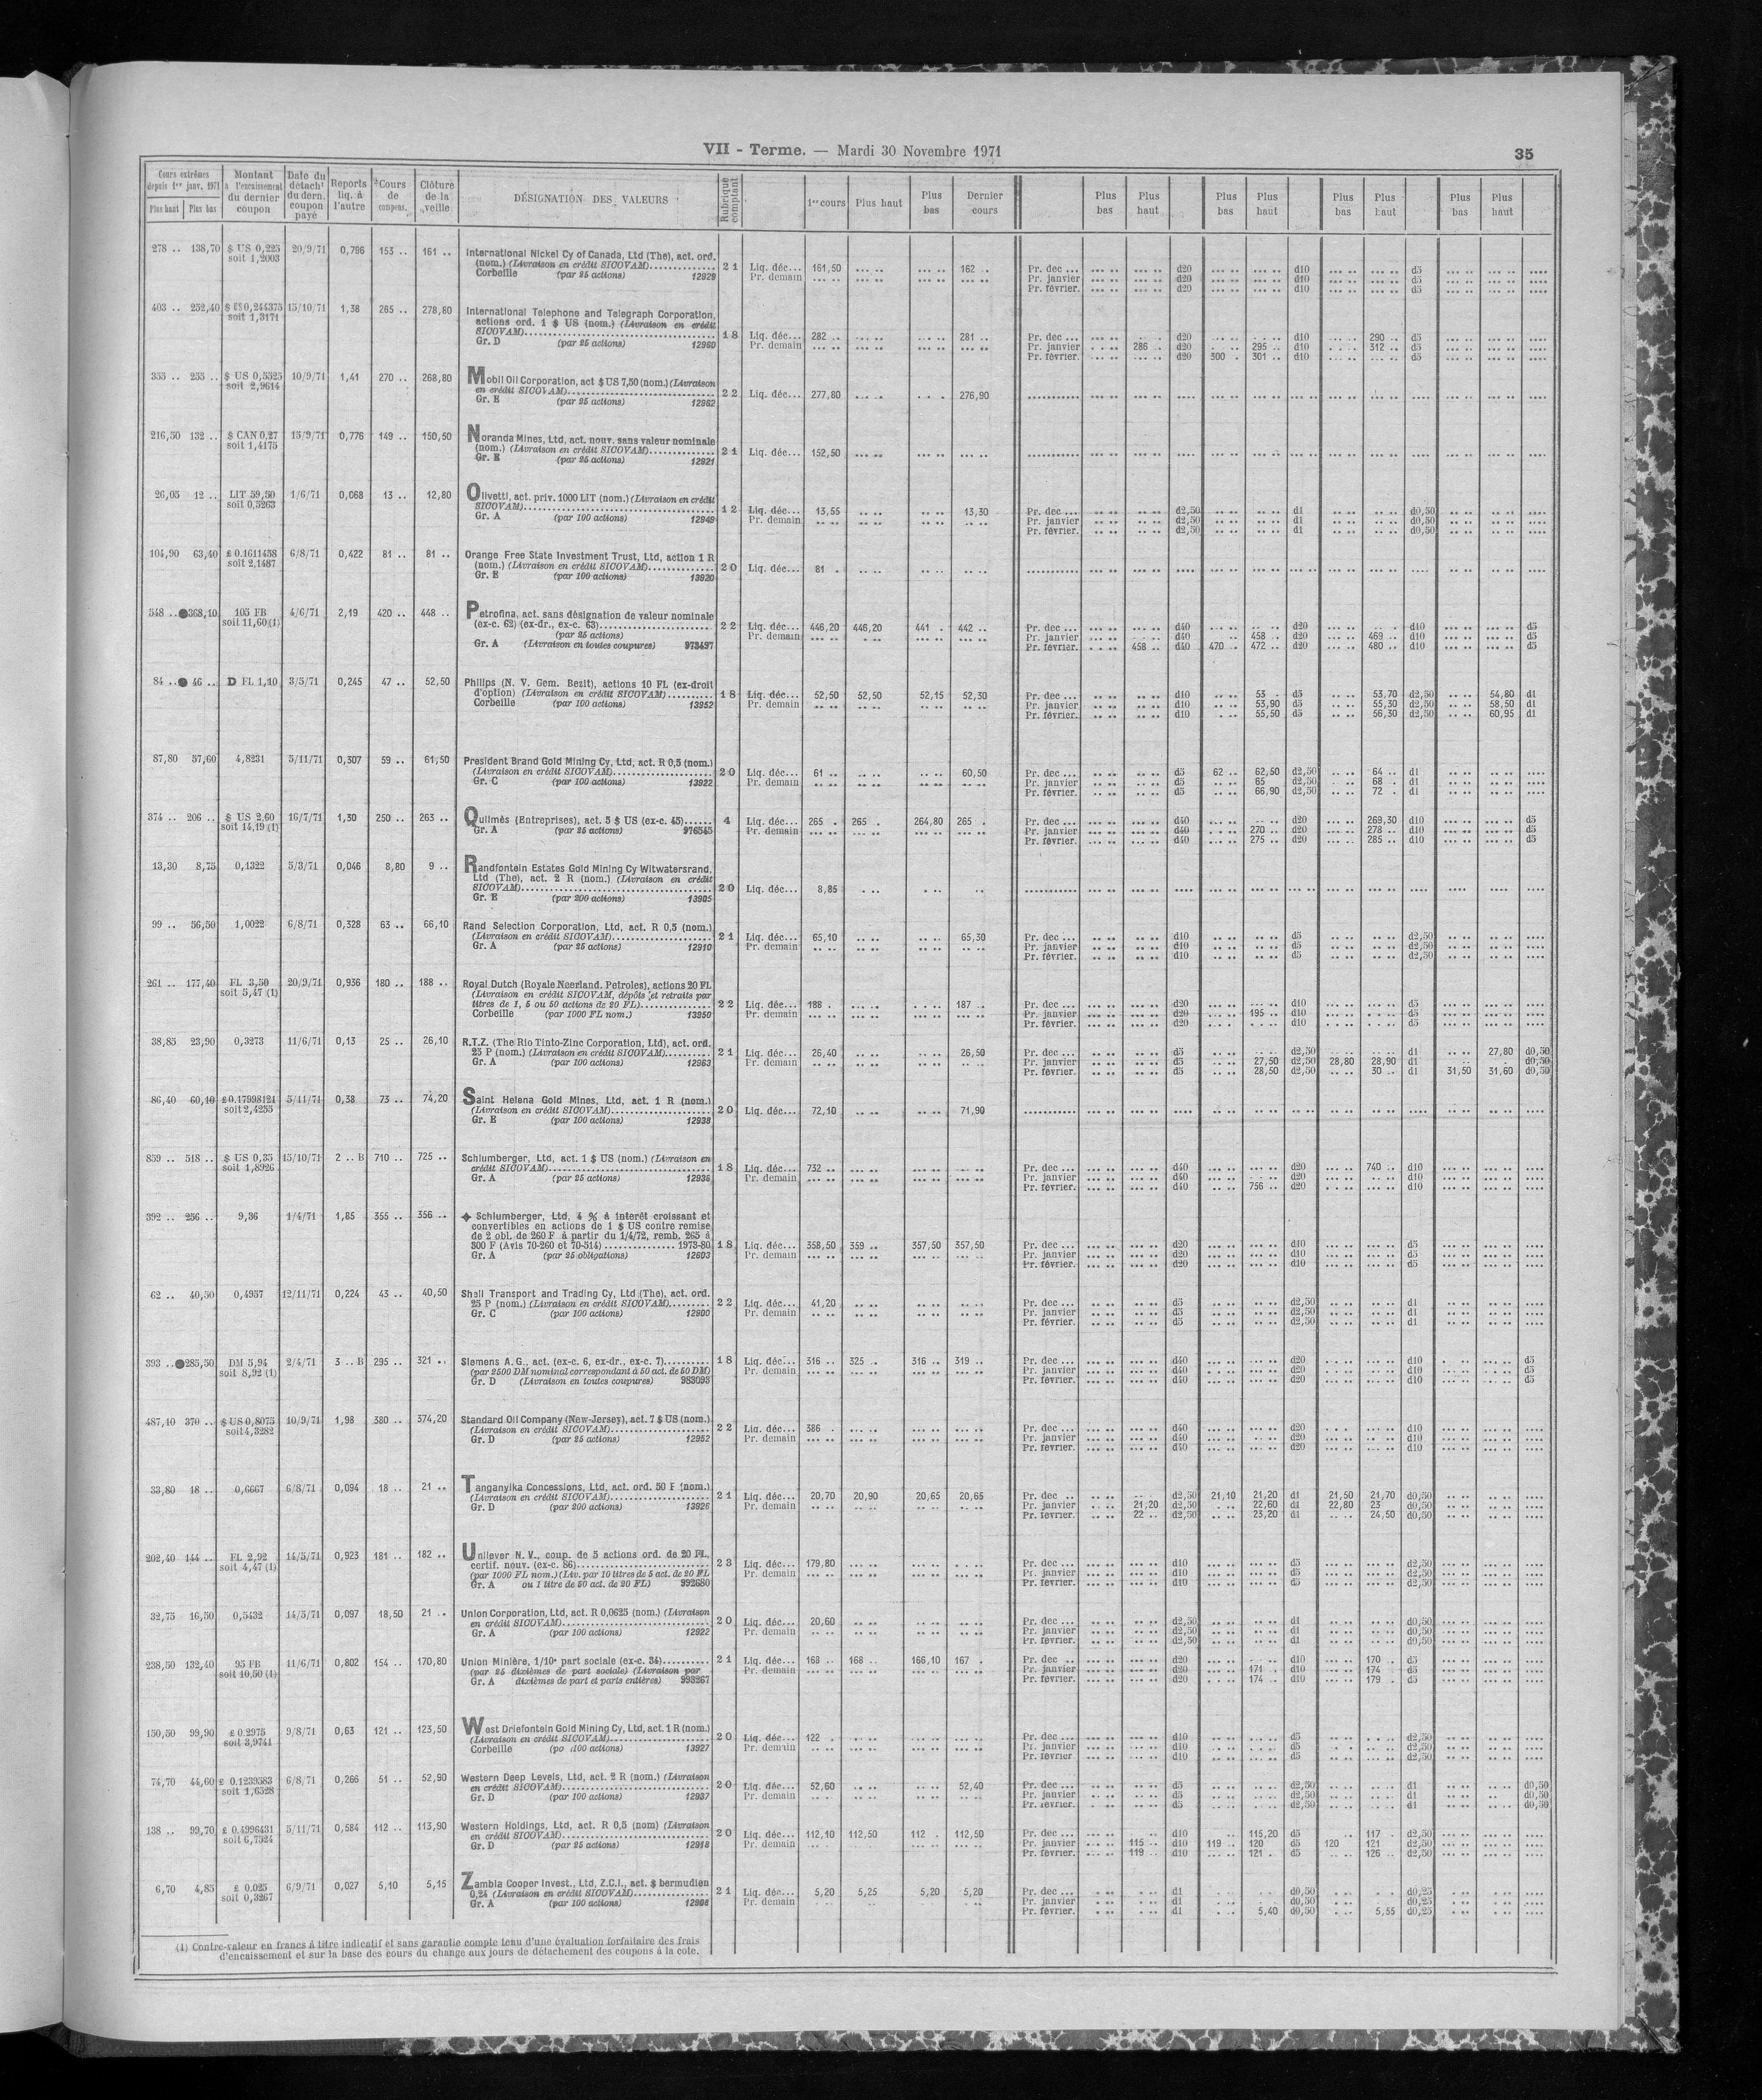 VII - Terme. — Mardi 30 Novembre 1971
35
Cours extrêmes depuis 1er janv. 1971 Plus haut Plus bas | Montant à l'encaissement du dernier coupon | Date du détacht du dern. coupon payé | Reports liq. à l'autre | Cours de compens. | Clôture de la veille | DÉSIGNATION DES VALEURS | Rubrique comptant | 1er cours | Plus haut | Plus bas | Dernier cours | Plus bas | Plus haut | Plus bas | Plus haut | Plus bas | Plus haut | Plus bas | Plus haut
278 .. 138,70 $ US 0,225 20/9/71 0,796 153 .. 161 .. International Nickel Cy of Canada, Ltd (The), act. ord.
soit 1,2003 (nom.) (Livraison en crédit SICOVAM) 21 Liq. déc... 161,50 162 .. Pr. dec ... d20 d10 d5
Corbeille (par 25 actions) 12929 Pr. demain Pr. janvier d20 d10 d5
Pr. février. d20 d10 d5
403 .. 252,40 $ US 0,244375 15/10/71 1,38 265 .. 278,80 International Telephone and Telegraph Corporation,
soit 1,3171 actions ord. 1 $ US (nom.) (Livraison en crédit
SICOVAM) 18 Liq. déc... 282 .. 281 .. Pr. dec ... d20 d10 290 .. d5
Gr. D (par 25 actions) 12960 Pr. demain Pr. janvier 286 .. d20 295 .. d10 312 .. d5
Pr. février. d20 300 . 301 .. d10 d5
355 .. 255 .. $ US 0,5525 10/9/71 1,41 270 .. 268,80 Mobil Oil Corporation, act $ US 7,50 (nom.) (Livraison
soit 2,9614 en crédit SICOVAM) 22 Liq. déc... 277,80 276,90
Gr. E (par 25 actions) 12962
216,50 132 .. $ CAN 0,27 15/9/71 0,776 149 .. 150,50 Noranda Mines, Ltd, act. nouv. sans valeur nominale
soit 1,4175 (nom.) (Livraison en crédit SICOVAM) 21 Liq. déc... 152,50
Gr. E (par 25 actions) 12921
26,05 12 .. LIT 59,50 1/6/71 0,068 13 .. 12,80 Olivetti, act. priv. 1000 LIT (nom.) (Livraison en crédit
soit 0,5263 SICOVAM) 12 Liq. déc... 13,55 13,30 Pr. dec ... d2,50 d1 d0,50
Gr. A (par 100 actions) 12949 Pr. demain Pr. janvier d2,50 d1 d0,50
Pr. février. d2,50 d1 d0,50
104,90 63,40 £ 0.1611458 6/8/71 0,422 81 .. 81 .. Orange Free State Investment Trust, Ltd, action 1 R
soit 2,1487 (nom.) (Livraison en crédit SICOVAM) 20 Liq. déc... 81 .
Gr. E (par 100 actions) 13920
548 .. ●368,10 105 FB 4/6/71 2,19 420 .. 448 .. Petrofina, act. sans désignation de valeur nominale
soit 11,60 (1) (ex-c. 62) (ex-dr., ex-c. 63) 22 Liq. déc... 446,20 446,20 441 . 442 .. Pr. dec ... d40 d20 d10 d5
(par 25 actions) Pr. demain Pr. janvier d40 458 .. d20 469 .. d10 d5
Gr. A (Livraison en toutes coupures) 973497 Pr. février. 458 .. d40 470 .. 472 .. d20 480 .. d10 d5
84 .. ● 46 .. D FL 1,10 3/5/71 0,245 47 .. 52,50 Philips (N. V. Gem. Bezit), actions 10 FL (ex-droit
d'option) (Livraison en crédit SICOVAM) 18 Liq. déc... 52,50 52,50 52,15 52,30 Pr. dec ... d10 53 . d5 53,70 d2,50 54,80 d1
Corbeille (par 100 actions) 13952 Pr. demain Pr. janvier d10 53,90 d5 55,30 d2,50 58,50 d1
Pr. février. d10 55,50 d5 56,30 d2,50 60,95 d1
87,80 57,60 4,8231 5/11/71 0,307 59 .. 61,50 President Brand Gold Mining Cy, Ltd, act. R 0,5 (nom.)
(Livraison en crédit SICOVAM) 20 Liq. déc... 61 .. 60,50 Pr. dec ... d5 62 .. 62,50 d2,50 64 .. d1
Gr. C (par 100 actions) 13922 Pr. demain Pr. janvier d5 65 d2,50 68 . d1
Pr. février. d5 66,90 d2,50 72 . d1
374 .. 206 .. $ US 2,60 16/7/71 1,30 250 .. 263 .. Quilmès (Entreprises), act. 5 $ US (ex-c. 45) 4 Liq. déc... 265 . 265 . 264,80 265 . Pr. dec ... d40 d20 269,30 d10 d5
soit 14,19 (1) Gr. A (par 25 actions) 976545 Pr. demain Pr. janvier d40 270 .. d20 278 .. d10 d5
Pr. février. d40 275 .. d20 285 .. d10 d5
13,30 8,75 0,1322 5/3/71 0,046 8,80 9 .. Randfontein Estates Gold Mining Cy Witwatersrand,
Ltd (The), act. 2 R (nom.) (Livraison en crédit
SICOVAM) 20 Liq. déc... 8,85
Gr. E (par 200 actions) 13905
99 .. 56,50 1,0022 6/8/71 0,328 63 .. 66,10 Rand Selection Corporation, Ltd, act. R 0,5 (nom.)
(Livraison en crédit SICOVAM) 21 Liq. déc... 65,10 65,30 Pr. dec ... d10 d5 d2,50
Gr. A (par 25 actions) 12910 Pr. demain Pr. janvier d10 d5 d2,50
Pr. février. d10 d5 d2,50
261 .. 177,40 FL 3,50 20/9/71 0,936 180 .. 188 .. Royal Dutch (Royale Neerland. Petroles), actions 20 FL
soit 5,47 (1) (Livraison en crédit SICOVAM, dépôts et retraits par
titres de 1, 5 ou 50 actions de 20 FL) 22 Liq. déc... 188 . 187 .. Pr. dec ... d20 d10 d5
Corbeille (par 1000 FL nom.) 13950 Pr. demain Pr. janvier d20 195 .. d10 d5
Pr. février. d20 d10 d5
38,85 23,90 0,3273 11/6/71 0,13 25 .. 26,10 R.T.Z. (The Rio Tinto-Zinc Corporation, Ltd), act. ord.
25 P (nom.) (Livraison en crédit SICOVAM) 21 Liq. déc... 26,40 26,50 Pr. dec ... d5 d2,50 d1 27,80 d0,50
Gr. A (par 100 actions) 12963 Pr. demain Pr. janvier d5 27,50 d2,50 28,80 28,90 d1 d0,50
Pr. février. d5 28,50 d2,50 30 .. d1 31,50 31,60 d0,50
86,40 60,10 £ 0.17998124 5/11/71 0,38 73 .. 74,20 Saint Helena Gold Mines, Ltd, act. 1 R (nom.)
soit 2,4255 (Livraison en crédit SICOVAM) 20 Liq. déc... 72,10 71,90
Gr. E (par 100 actions) 12938
859 .. 518 .. $ US 0,35 15/10/71 2 .. B 710 .. 725 .. Schlumberger, Ltd, act. 1 $ US (nom.) (Livraison en
soit 1,8926 crédit SICOVAM) 18 Liq. déc... 732 .. Pr. dec ... d40 d20 740 .. d10
Gr. A (par 25 actions) 12936 Pr. demain Pr. janvier d40 d20 d10
Pr. février. d40 756 .. d20 d10
392 .. 256 .. 9,36 1/4/71 1,85 355 .. 356 .. ✦ Schlumberger, Ltd, 4 % à intérêt croissant et
convertibles en actions de 1 $ US contre remise
de 2 obl. de 260 F à partir du 1/4/72, remb. 265 à
300 F (Avis 70-260 et 70-514) 1973-80 18 Liq. déc... 358,50 359 .. 357,50 357,50 Pr. dec ... d20 d10 d5
Gr. A (par 25 obligations) 12603 Pr. demain Pr. janvier d20 d10 d5
Pr. février. d20 d10 d5
62 .. 40,50 0,4957 12/11/71 0,224 43 .. 40,50 Shell Transport and Trading Cy, Ltd (The), act. ord.
25 P (nom.) (Livraison en crédit SICOVAM) 22 Liq. déc... 41,20 Pr. dec ... d5 d2,50 d1
Gr. C (par 100 actions) 12900 Pr. demain Pr. janvier d5 d2,50 d1
Pr. février. d5 d2,50 d1
393 .. ●285,50 DM 5,94 2/4/71 3 .. B 295 .. 321 .. Siemens A.G., act. (ex-c. 6, ex-dr., ex-c. 7) 18 Liq. déc... 316 .. 325 .. 316 .. 319 .. Pr. dec ... d40 d20 d10 d5
soit 8,92 (1) (par 2500 DM nominal correspondant à 50 act. de 50 DM) Pr. demain Pr. janvier d40 d20 d10 d5
Gr. D (Livraison en toutes coupures) 983093 Pr. février. d40 d20 d10 d5
487,10 370 .. $ US 0,8075 10/9/71 1,98 380 .. 374,20 Standard Oil Company (New-Jersey), act. 7 $ US (nom.)
soit 4,3282 (Livraison en crédit SICOVAM) 22 Liq. déc... 386 . Pr. dec ... d40 d20 d10
Gr. D (par 25 actions) 12952 Pr. demain Pr. janvier d40 d20 d10
Pr. février. d40 d20 d10
33,80 18 .. 0,6667 6/8/71 0,094 18 .. 21 .. Tanganyika Concessions, Ltd, act. ord. 50 F (nom.)
(Livraison en crédit SICOVAM) 21 Liq. déc... 20,70 20,90 20,65 20,65 Pr. dec .. d2,50 21,10 21,20 d1 21,50 21,70 d0,50
Gr. D (par 200 actions) 13926 Pr. demain Pr. janvier 21,20 d2,50 22,60 d1 22,80 23 d0,50
Pr. février. 22 .. d2,50 23,20 d1 24,50 d0,50
202,40 144 .. FL 2,92 14/5/71 0,923 181 .. 182 .. Unilever N. V., coup. de 5 actions ord. de 20 FL,
soit 4,47 (1) certif. nouv. (ex-c. 86) 23 Liq. déc... 179,80 Pr. dec ... d10 d5 d2,50
(par 1000 FL nom.) (Liv. par 10 titres de 5 act. de 20 FL Pr. demain Pr. janvier d10 d5 d2,50
Gr. A ou 1 titre de 50 act. de 20 FL) 992680 Pr. février. d10 d5 d2,50
32,75 16,50 0,5432 14/5/71 0,097 18,50 21 .. Union Corporation, Ltd, act. R 0,0625 (nom.) (Livraison
en crédit SICOVAM) 20 Liq. déc... 20,60 Pr. dec ... d2,50 d1 d0,50
Gr. A (par 100 actions) 12922 Pr. demain Pr. janvier d2,50 d1 d0,50
Pr. février. d2,50 d1 d0,50
238,50 132,40 95 FB 11/6/71 0,802 154 .. 170,80 Union Minière, 1/10e part sociale (ex-c. 34) 21 Liq. déc... 168 .. 168 .. 166,10 167 . Pr. dec .. d20 d10 170 .. d5
soit 10,50 (1) (par 25 dixièmes de part sociale) (Livraison par Pr. demain Pr. janvier d20 171 . d10 174 d5
Gr. A dixièmes de part et parts entières) 993267 Pr. février. d20 174 .. d10 179 . d5
150,50 99,90 £ 0.2975 9/8/71 0,63 121 .. 123,50 West Driefontein Gold Mining Cy, Ltd, act. 1 R (nom.)
soit 3,9741 (Livraison en crédit SICOVAM) 20 Liq. déc... 122 . Pr. dec ... d10 d5 d2,50
Corbeille (100 actions) 13927 Pr. demain Pr. janvier d10 d5 d2,50
Pr. février d10 d5 d2,50
74,70 44,60 £ 0.1239583 6/8/71 0,266 51 .. 52,90 Western Deep Levels, Ltd, act. 2 R (nom.) (Livraison
soit 1,6528 en crédit SICOVAM) 20 Liq. déc... 52,60 52,40 Pr. dec ... d5 d2,50 d1 d0,50
Gr. D (par 100 actions) 12937 Pr. demain Pr. janvier d5 d2,50 d1 d0,50
Pr. février. d5 d2,50 d1 d0,50
138 .. 99,70 £ 0.4996431 5/11/71 0,584 112 .. 113,90 Western Holdings, Ltd, act. R 0,5 (nom) (Livraison
soit 6,7524 en crédit SICOVAM) 20 Liq. déc... 112,10 112,50 112 . 112,50 Pr. dec ... d10 115,20 d5 117 . d2,50
Gr. D (par 25 actions) 12918 Pr. demain Pr. janvier 115 .. d10 119 .. 120 d5 120 121 d2,50
Pr. février. 119 .. d10 121 . d5 126 .. d2,50
6,70 4,85 £ 0.025 6/9/71 0,027 5,10 5,15 Zambia Cooper Invest., Ltd, Z.C.I., act. $ bermudien
soit 0,3267 0,24 (Livraison en crédit SICOVAM) 21 Liq. déc... 5,20 5,25 5,20 5,20 Pr. dec ... d1 d0,50 d0,25
Gr. A (par 100 actions) 12908 Pr. demain Pr. janvier d1 d0,50 d0,25
Pr. février. d1 5,40 d0,50 5,55 d0,25
(1) Contre-valeur en francs à titre indicatif et sans garantie compte tenu d'une évaluation forfaitaire des frais
d'encaissement et sur la base des cours du change aux jours de détachement des coupons à la cote.